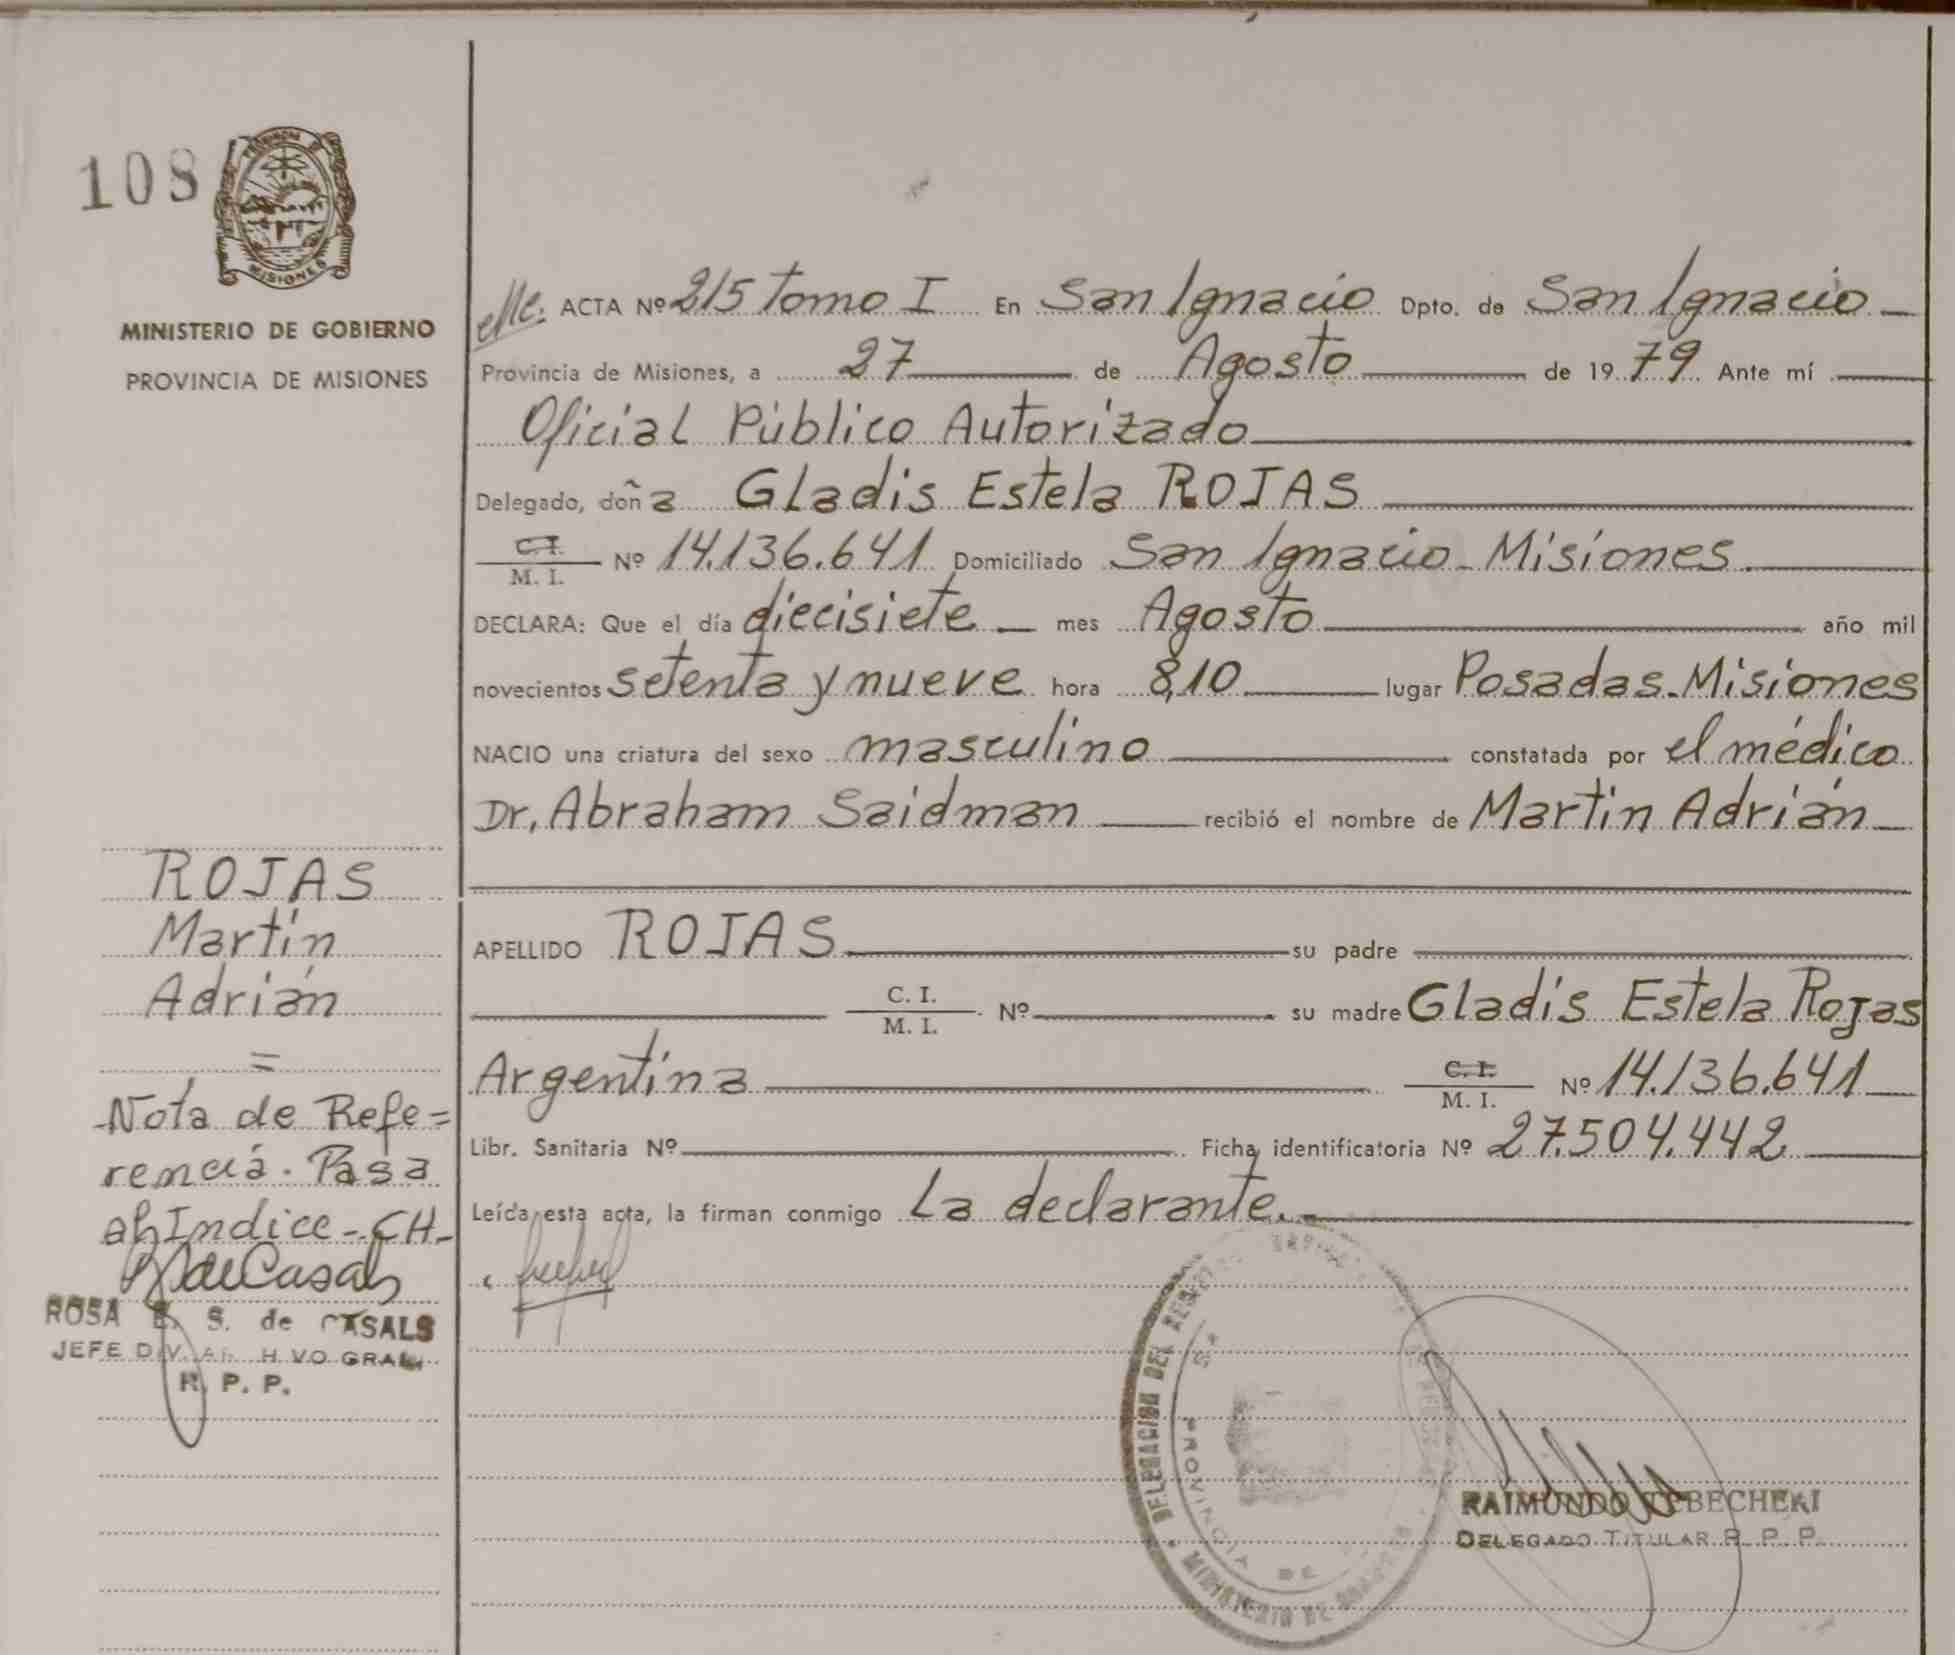 108
PROVINCIA DE
MISIONES
MINISTERIO DE GOBIERNO
PROVINCIA DE MISIONES
ACTA Nº 215 Tomo I En San Ignacio Dpto. de San Ignacio
Provincia de Misiones, a 27 de Agosto de 1979 Ante mí
Oficial Público Autorizado
Delegado, doña Gladis Estela ROJAS
C.I. / M. I. Nº 14.136.641 Domiciliado San Ignacio - Misiones.
DECLARA: Que el día diecisiete mes Agosto año mil
novecientos setenta y nueve hora 8,10 lugar Posadas - Misiones
NACIO una criatura del sexo masculino constatada por el médico
Dr. Abraham Saidman recibió el nombre de Martín Adrián
APELLIDO ROJAS su padre
C. I. / M. I. Nº su madre Gladis Estela Rojas
Argentina C. I. / M. I. Nº 14.136.641
Libr. Sanitaria Nº Ficha identificatoria Nº 27.504.442
Leída esta acta, la firman conmigo La declarante.
ROJAS
Martín
Adrián
=
Nota de Refe=
rencia. Pasa
al Indice - CH-
ROSA E. S. de CASALS
JEFE DIV. ARCHIVO GRAL.
R. P. P.
DELEGACION DEL
PROVINCIA DE
MINISTERIO DE
RAIMUNDO TEBECHERI
DELEGADO TITULAR R. P. P.